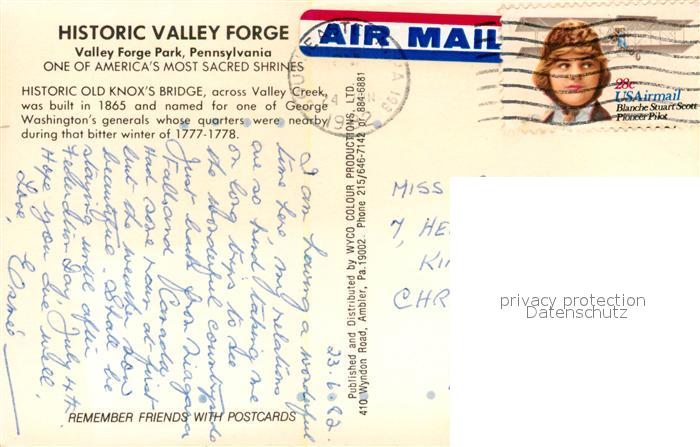 HISTORIC VALLEY FORGE
Valley Forge Park, Pennsylvania
ONE OF AMERICA'S MOST SACRED SHRINES
HISTORIC OLD KNOX'S BRIDGE, across Valley Creek,
was built in 1865 and named for one of George
Washington's generals whose quarters were nearby
during that bitter winter of 1777-1778.
AIR MAIL
28c
USAirmail
Blanche Stuart Scott
Pioneer Pilot
Published and Distributed by WYCO COLOUR PRODUCTIONS, LTD.
410 Wyndon Road, Ambler, Pa. 19002. Phone 215/646-7142 or 884-6881
23.6.82
I am having a wonderful
time here my relations
are so kind taking me
on long trips to see
the wonderful countryside
Just back from Niagara
Falls and Canada
Had some rain at first
but the weather now
beautiful. Shall be
staying until after
Day, July 4th
Hope you are well,
Love,
MISS
7, HE
KI
CHR
privacy protection
Datenschutz
REMEMBER FRIENDS WITH POSTCARDS